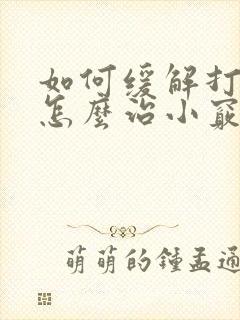 如何缓解打
怎麼治小窍
萌萌的鍾孟通